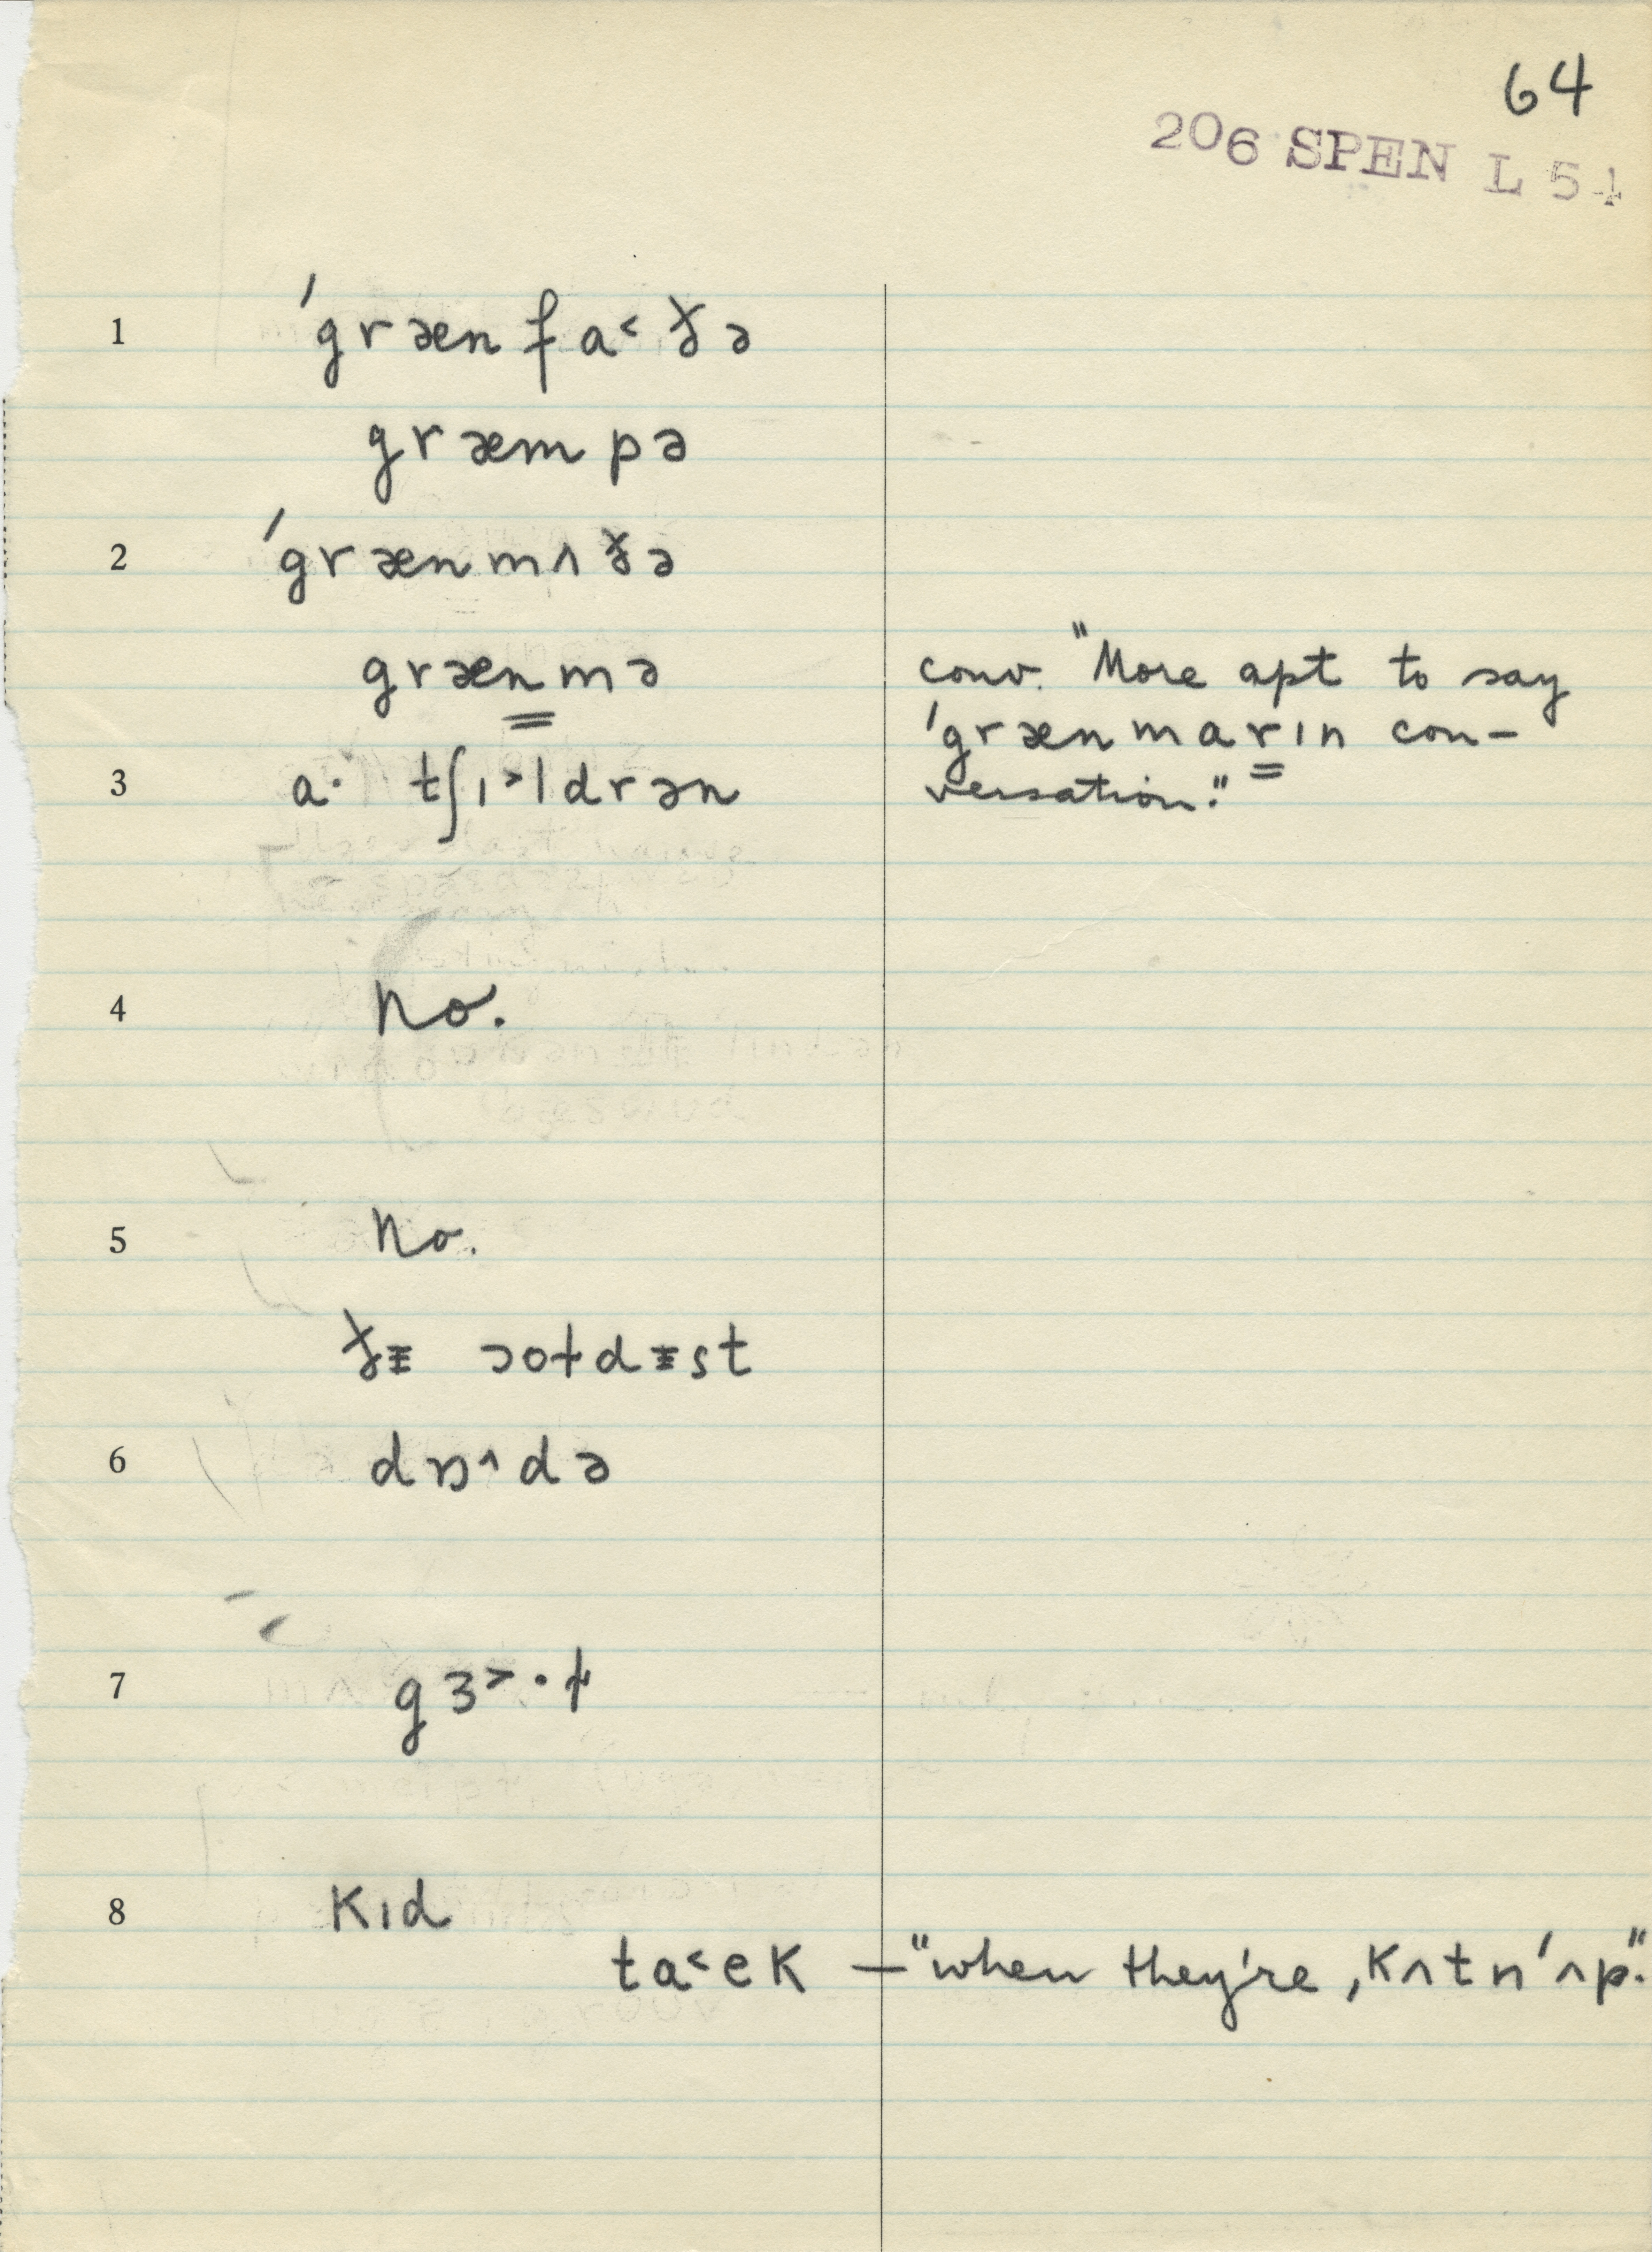 64
206 SPEN L 54
1 ˈgrænfa˂ðə
græmpə
2 ˈgrænmʌðə
grænmə
conv. "More apt to say
ˈgrænmarɪn con-
versation."
3 a· tʃɪ˃ldrən
4 No.
5 No.
ðᵻ ɔoɫdᵻst
6 dɒ˄də
7 gɜ˃·ɫ
8 kɪd
ta˂ek — "when they're ˌkʌtnˈʌp."